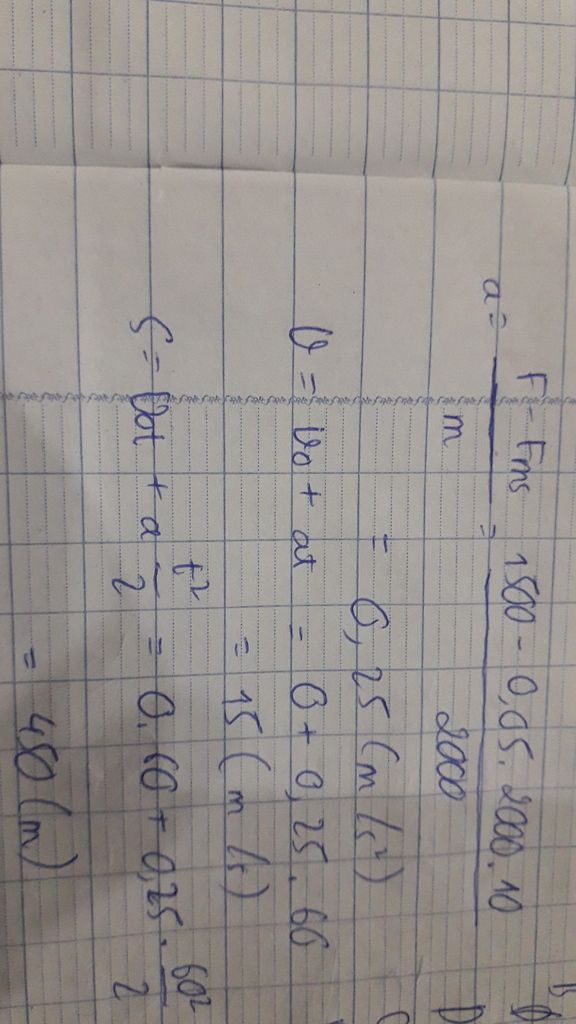 a = (F - Fms)/m = (1500 - 0,05. 2000. 10)/2000
= 0,25 (m/s²)
v = v₀ + at = 0 + 0,25. 60
= 15 (m/s)
S = v₀t + a t²/2 = 0. 60 + 0,25. 60²/2
= 450 (m)